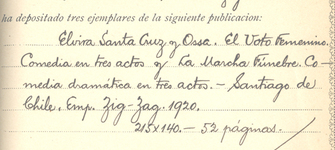 ha depositado tres ejemplares de la siguiente publicacion:
Elvira Santa Cruz y Ossa. El Voto Femenino.
Comedia en tres actos y La Marcha Fúnebre. Co-
media dramática en tres actos. - Santiago de
Chile. Emp. Zig-Zag. 1920.
215x140. - 52 páginas.